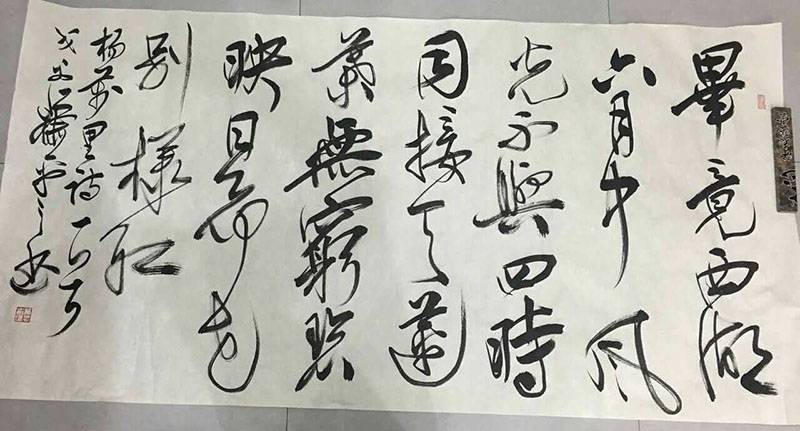 畢竟西湖
六月中風
光不與四時
同接天蓮
葉無窮碧
映日荷花
別樣紅
楊萬里詩一首
書